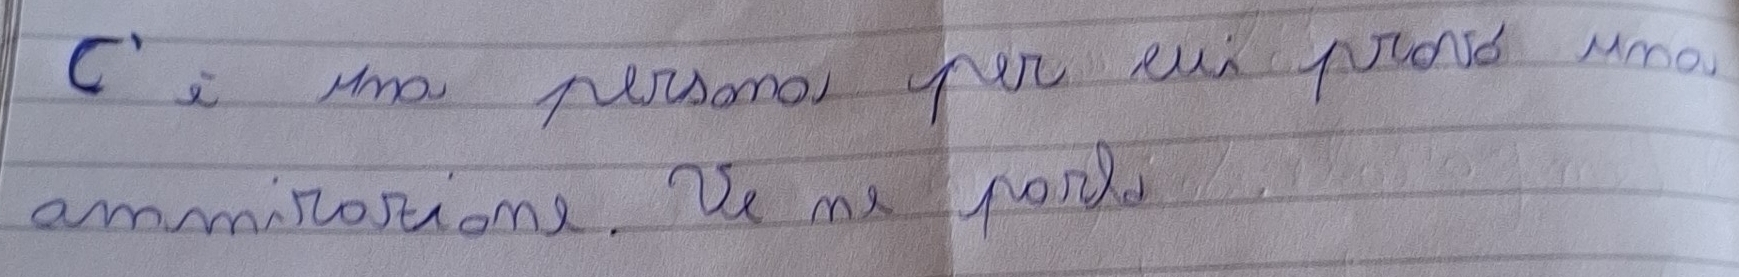 C'è una persona per cui provo una
ammirazione. Ve ne parlo